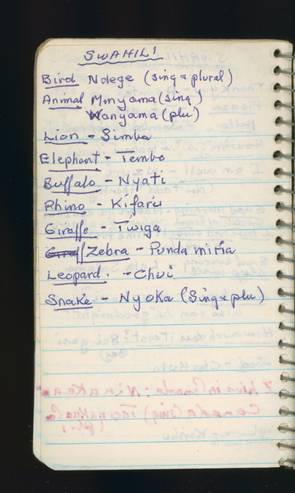 SWAHILI
Bird Ndege (sing & plural)
Animal Mnyama (sing)
Wanyama (plu)
Lion - Simba
Elephant - Tembo
Buffalo - Nyati
Rhino - Kifaru
Giraffe - Twiga
Zebra - Punda milia
Leopard. - Chui
Snake - Nyoka (Sing & plu)